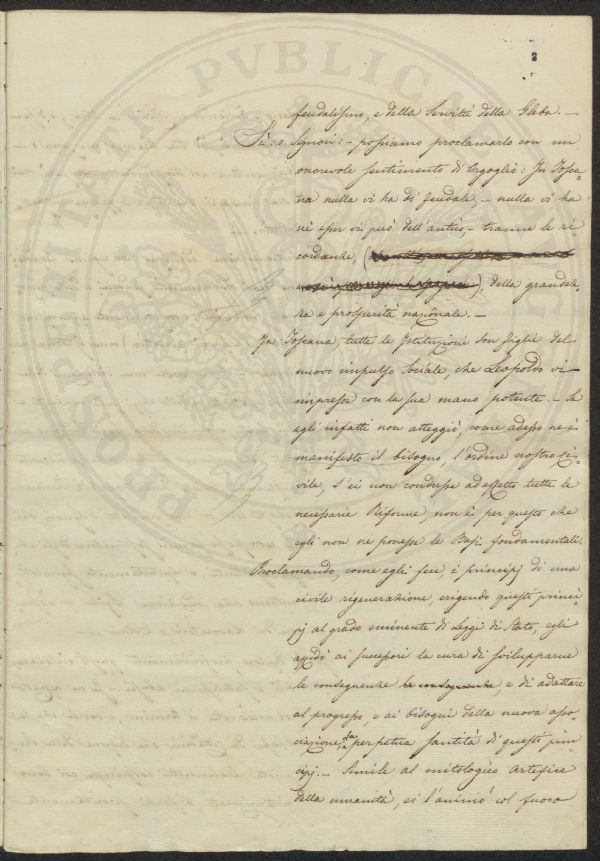 feudalismo, e della Servitù della Gleba. —
Sì: o Signori: - possiamo proclamarlo con un
onorevole sentimento di Orgoglio: In Tosca-
na nulla vi ha di feudale, - nulla vi ha
nè esser vi può dell'antico, - tranne le ri-
cordanze, (
), della grandez-
za e prosperità nazionale. —
In Toscana tutte le Istituzioni son figlie del
nuovo impulso Sociale, che Leopoldo vi
impresse con la sua mano potente. - Se
egli infatti non atteggiò, come adesso ne è
manifesto il bisogno, l'ordine nostro ci-
vile, s'ei non condusse ad effetto tutte le
necessarie Riforme, non è per questo che
egli non ne ponesse le Basi fondamentali.
Proclamando, come egli fece, i principj di una
civile rigenerazione, erigendo questi princi-
pj al grado eminente di Leggi di Stato, egli
affidò ai successori la cura di svilupparne
le conseguenze le conseguenze, e di adattare
al progresso, e ai bisogni della nuova asso-
ciazione, la perpetua santità di questi prin-
cipj. — Simile al mitologico artefice
della umanità, ei l'animò col fuoco
PROSPERITATI PVBLICAE
2